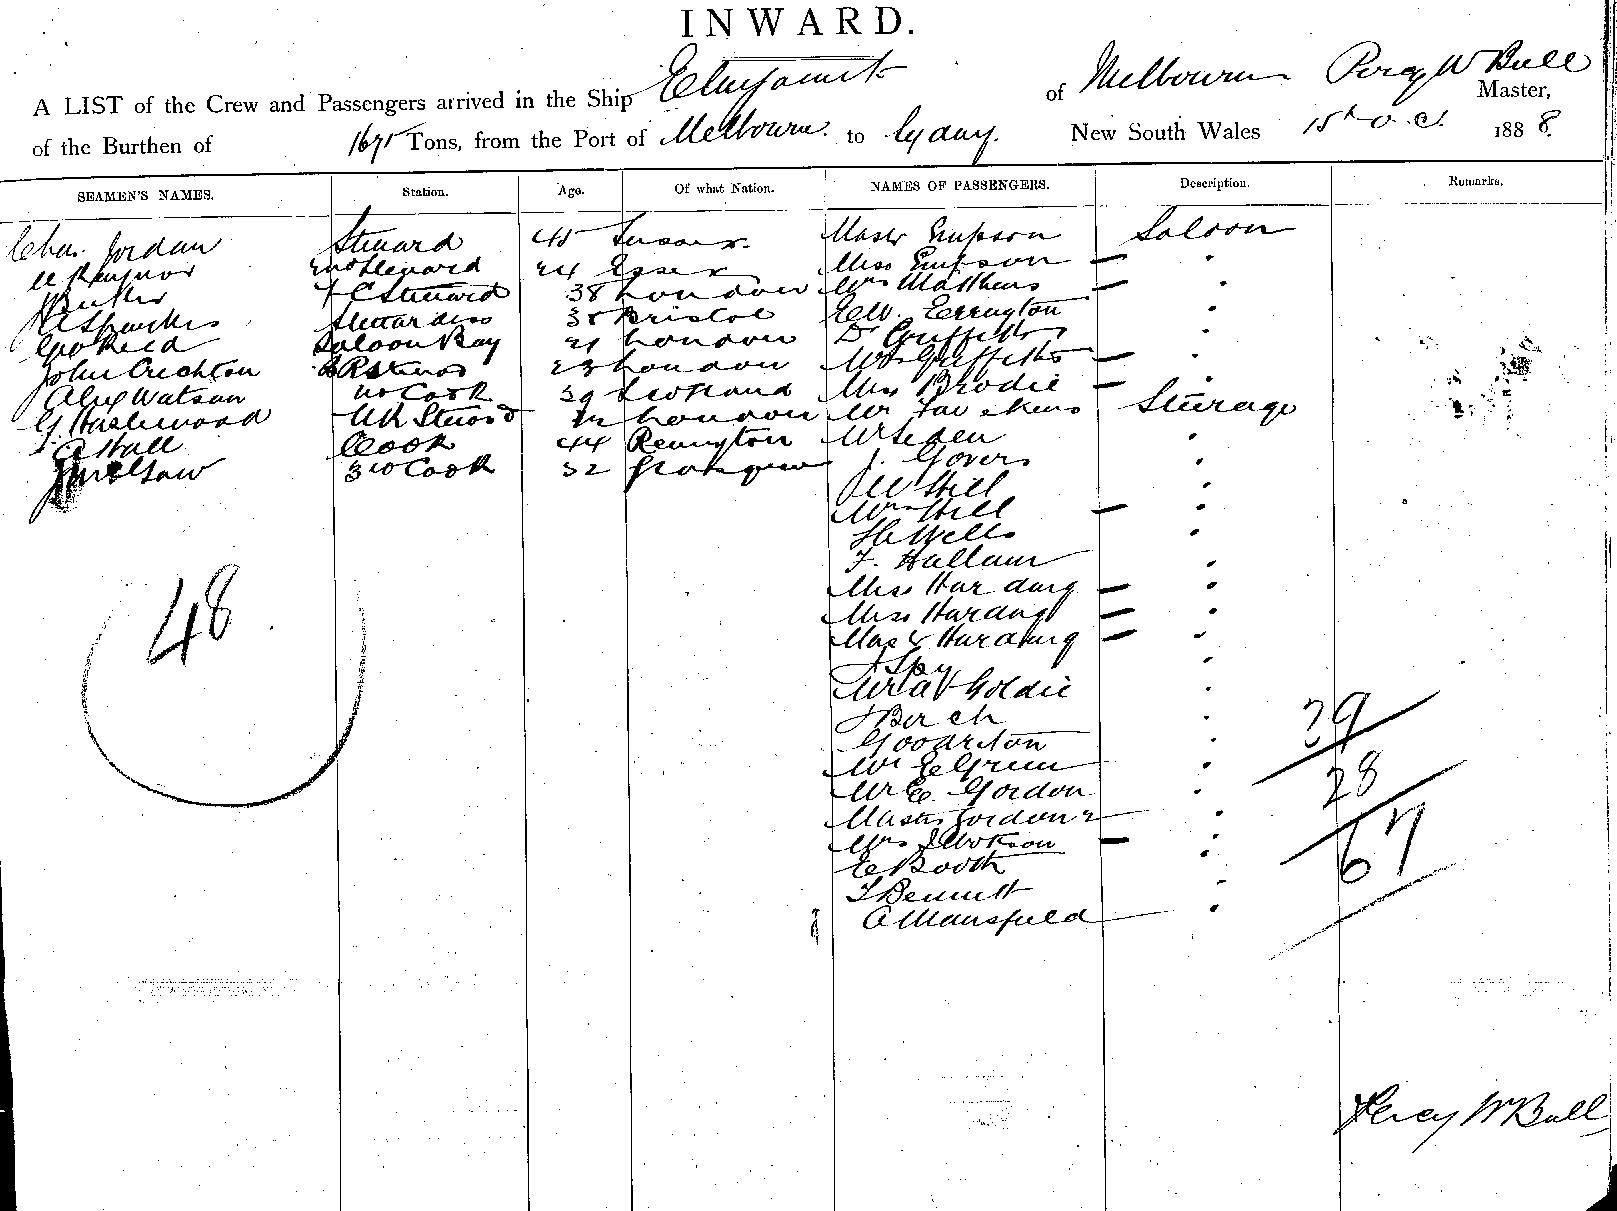 INWARD.
A LIST of the Crew and Passengers arrived in the Ship of Melbourne Percy W Bull Master,
of the Burthen of 1675 Tons, from the Port of Melbourne to Sydney. New South Wales 15th Oct. 1888.
SEAMEN'S NAMES. Station. Age. Of what Nation. NAMES OF PASSENGERS. Description. Remarks.
Chas. Jordan Steward 45 Sussex Master Empson Saloon
2nd Steward 24 Essex Miss Empson — "
F C Steward 38 London Mrs Matthews — "
Stewardess 38 Bristol E W. Errington "
Geo Reed Saloon Boy 21 London Dr Griffiths "
John Crichton 23 London Mrs Griffiths — "
Alex Watson 2nd Cook 39 Scotland Miss Brodie — "
G. Haslewood London Mr Steerage
A Hall Cook 44 "
3rd Cook 32 J. Govers "
J W Hill "
Mrs Hill — "
H Wells "
F. Hallam "
Miss Harding — "
Miss Harding — "
Mast Harding — "
Spry "
Mr A V Goldie "
J Birch "
"
Mr E Green "
Mr E. Gordon "
Masters Gordon 2 "
Mrs — "
E Booth "
T Bennett "
A Mansfield "
48
39
28
67
Percy W Bull